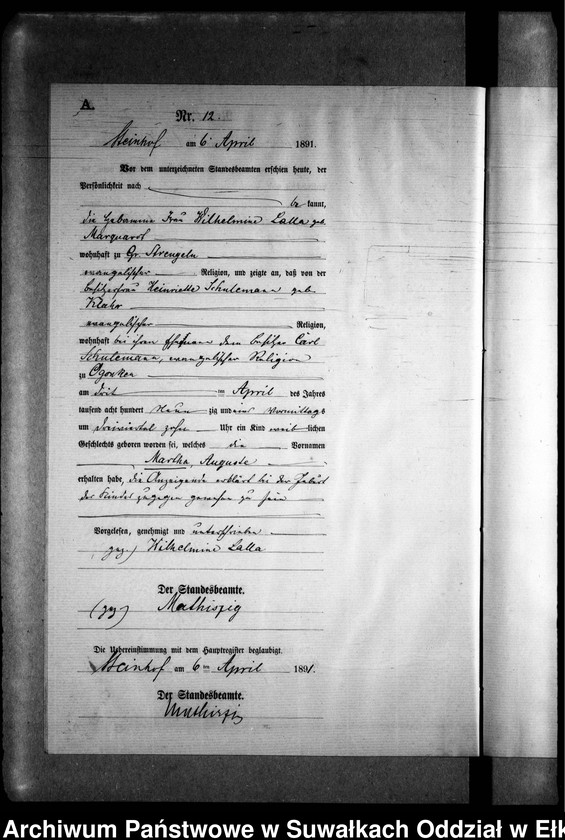 A.
Nr. 12.
Steinhof am 6 April 1891.
Vor dem unterzeichneten Standesbeamten erschien heute, der
Persönlichkeit nach
be kannt,
die Hebamme Frau Wilhelmine Lalla geb.
Marquardt
wohnhaft zu Gr Strengeln
evangelischer Religion, und zeigte an, daß von der
Besitzerfrau Heinriette Schulemann geb.
Klahr
evangelischer Religion,
wohnhaft bei ihrem Ehemann dem Besitzer Carl
Schulemann, evangelischer Religion
zu Ogonken
am drit ten April des Jahres
tausend acht hundert Neun zig und eins Vormittags
um dreiviertel zehn Uhr ein Kind weib lichen
Geschlechts geboren worden sei, welches die Vornamen
Martha, Auguste
erhalten habe, die Anzeigende erklärt bei der Geburt
des Kindes zugegen gewesen zu sein
Vorgelesen, genehmigt und unterschrieben
gez.) Wilhelmine Lalla
Der Standesbeamte.
(gez) Mathiszig
Die Uebereinstimmung mit dem Hauptregister beglaubigt.
Steinhof am 6 ten April 1891.
Der Standesbeamte.
Mathiszig
Archiwum Państwowe w Suwałkach Oddział w Ełk